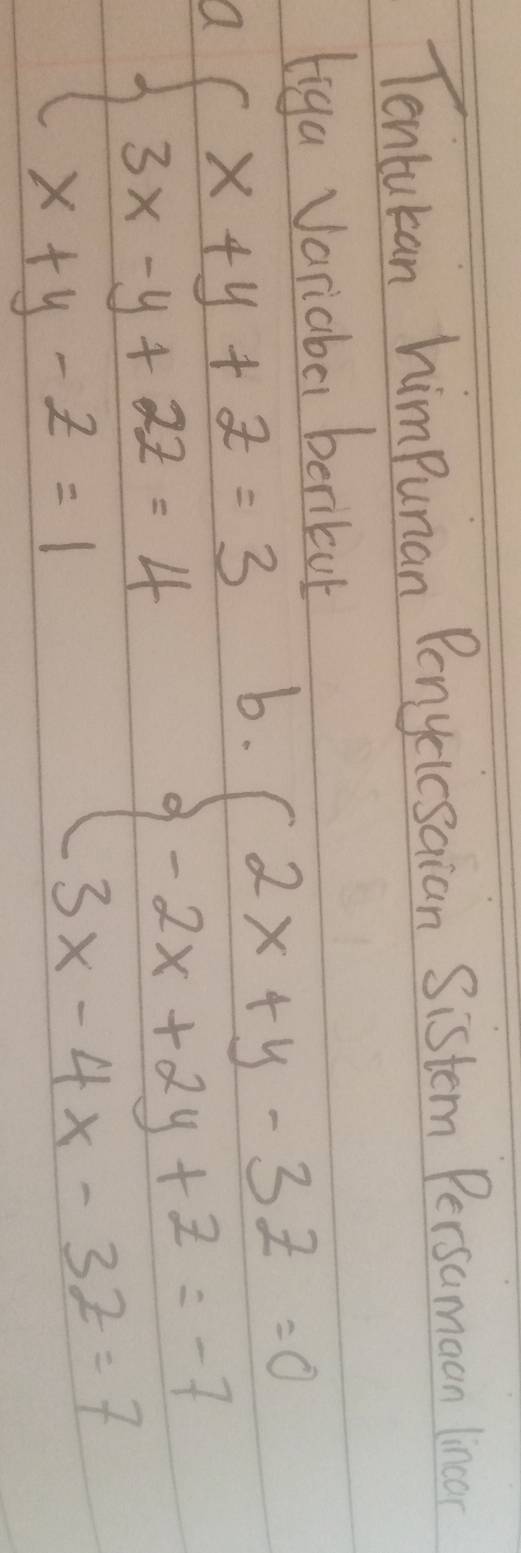 Tentukan himpunan Penyelesaian Sistem Persamaan linear
tiga Variabel berikut
a { x + y + z = 3
3x - y + 2z = 4
x + y - z = 1
b. { 2x + y - 3z = 0
-2x + 2y + z = -7
3x - 4x - 3z = 7